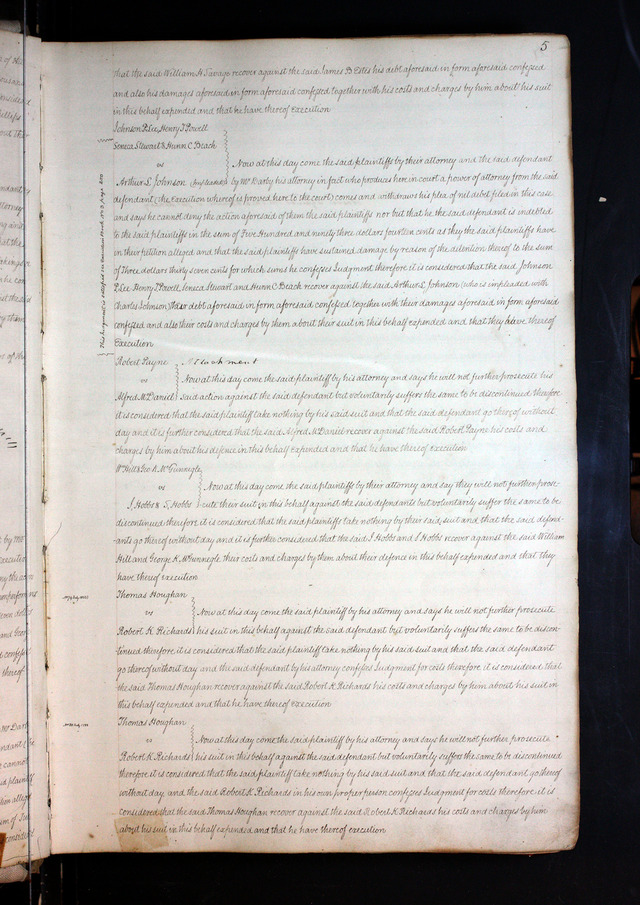 5
that the said William H. Savage recover against the said James B Estes his debt aforesaid in form aforesaid confessed
and also his damages aforesaid in form aforesaid confessed together with his costs and charges by him about his suit
in this behalf expended and that he have thereof execution
Johnson P. Lee, Henry T Powell
Seneca Stewart & Hunn C Beach
vs Now at this day come the said plaintiffs by their attorney and the said defendant
Arthur L Johnson by Mr Darby his attorney in fact who produces here in court a power of attorney from the said
defendant (the Execution whereof is proved here to the court) comes and withdraws his plea of nil debet filed in this case
and says he cannot deny the action aforesaid of them the said plaintiffs nor but that he the said defendant is indebted
to the said plaintiffs in the sum of Five Hundred and ninety three dollars fourteen cents as they the said plaintiffs have
in their petition alleged and that the said plaintiffs have sustained damage by reason of the detention thereof to the sum
of Three dollars thirty seven cents for which sums he confesses Judgment therefore it is considered that the said Johnson
P. Lee Henry T Powell, Seneca Stewart and Hunn C Beach recover against the said Arthur L Johnson (who is impleaded with
Charles Johnson) their debt aforesaid in form aforesaid confessed together with their damages aforesaid in form aforesaid
confessed and also their costs and charges by them about their suit in this behalf expended and that they have thereof
Execution
This judgment is satisfied see Execution Book No 3, page
Robert Payne Attachment
vs Now at this day come the said plaintiff by his attorney and says he will not further prosecute his
Alfred McDaniel said action against the said defendant but voluntarily suffers the same to be discontinued therefore
it is considered that the said plaintiff take nothing by his said suit and that the said defendant go thereof without
day and it is further considered that the said Alfred McDaniel recover against the said Robert Payne his costs and
charges by him about his defence in this behalf expended and that he have thereof execution
Wm Hill & Geo K. McGunnegle
vs Now at this day come the said plaintiffs by their attorney and say they will not further prose-
J Hobbs & S. Hobbs cute their suit in this behalf against the said defendants but voluntarily suffer the same to be
discontinued therefore it is considered that the said plaintiffs take nothing by their said suit and that the said defend-
ants go thereof without day and it is further considered that the said J Hobbs and S Hobbs recover against the said William
Hill and George K. McGunnegle, their costs and charges by them about their defence in this behalf expended and that they
have thereof execution
Thomas Houghan
vs Now at this day come the said plaintiff by his attorney and says he will not further prosecute
Robert K Richards his suit in this behalf against the said defendant but voluntarily suffers the same to be discon-
tinued therefore, it is considered that the said plaintiff take nothing by his said suit and that the said defendant
go thereof without day and the said defendant by his attorney confesses Judgment for costs therefore it is considered, that
the said Thomas Houghan recover against the said Robert K Richards his costs and charges by him about his suit in
this behalf expended and that he have thereof execution
Thomas Houghan
vs Now at this day come the said plaintiff by his attorney and says he will not further, prosecute
Robert K Richards his suit in this behalf against the said defendant but voluntarily suffers the same to be discontinued
therefore it is considered that the said plaintiff take nothing by his said suit and that the said defendant go thereof
without day and the said Robert K Richards in his own proper person confesses Judgment for costs therefore it is
considered that the said Thomas Houghan recover against the said Robert K Richards his costs and charges by him
about his suit in this behalf expended and that he have thereof execution